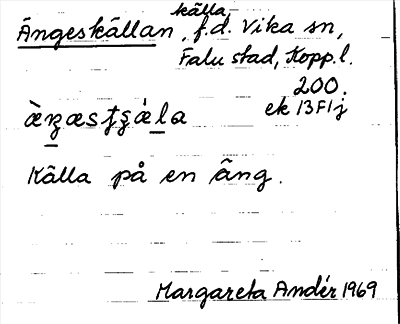 källa
Ängeskällan, f.d. Vika sn,
Falu stad, Kopp.l.
200.
ek 13F1j
Källa på en äng.
Margareta Andér 1969